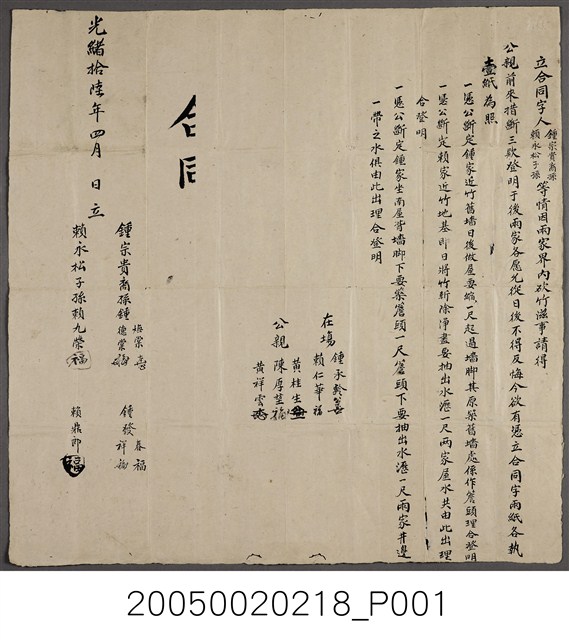 立合同字人鍾宗貴裔孫賴永松子孫等情因兩家界內砍竹滋事請得
公親前來措斷三欵登明于後兩家各愿允從日後不得反悔今欲有憑立合同字兩紙各執
壹紙為照
一憑公斷定鍾家近竹舊墻日後做屋要縮一尺起過墻脚其原築舊墻處係作簷頭理合登明
一憑公斷定賴家近竹地基即日將竹斬除淨盡要抽出水瀝一尺兩家屋水共由此出理
合登明
一憑公斷定鍾家坐南屋背墻脚下要築簷頭一尺簷頭下要抽出水瀝一尺兩家井邊
一帶之水俱由此出理合登明
在塲 鍾承齡 賴仁華福
公親 黃桂生 陳厚基福 黃祥雲
合同
光緒拾陸年四月 日立
鍾宗貴裔孫鍾 德崇 鍾發 春福 祥
賴永松子孫賴九榮福 賴鼎郎福
20050020218_P001